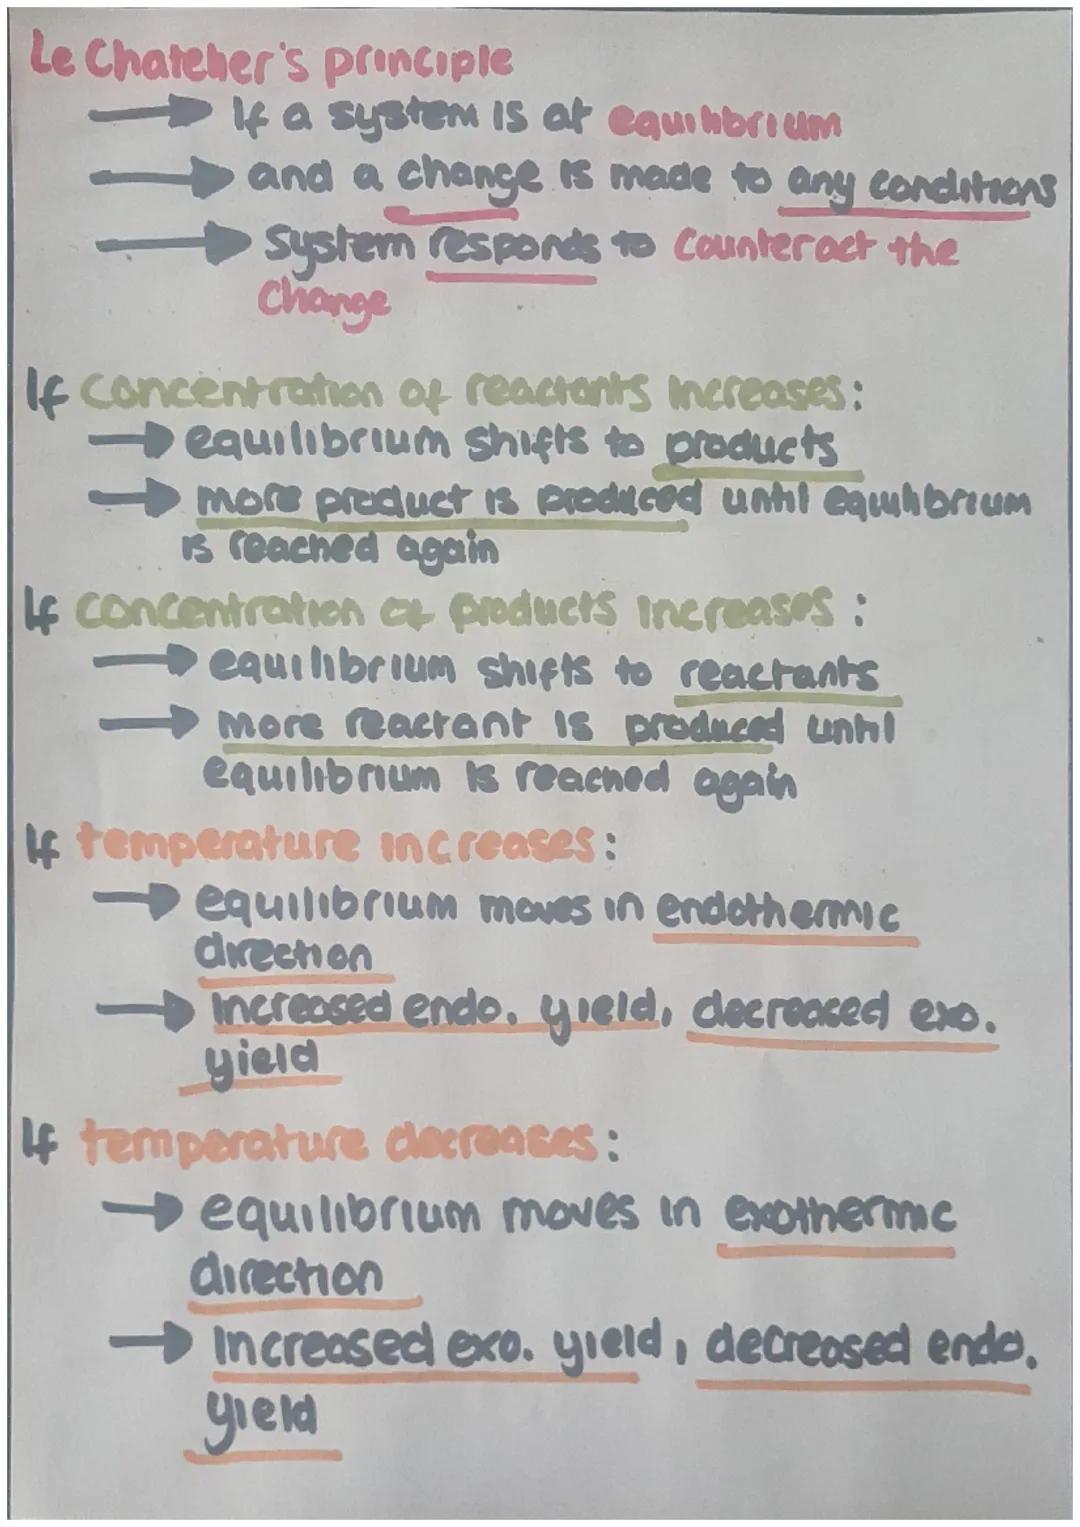 Le Chatelier's principle
→ If a system is at equilibrium
→ and a change is made to any conditions
→ System responds to counteract the
change
If concentration of reactants increases:
→ equilibrium shifts to products
→ more product is produced until equilibrium
is reached again
If concentration of products increases:
→ equilibrium shifts to reactants
→ more reactant is produced until
equilibrium is reached again
If temperature increases:
→ equilibrium moves in endothermic
direction
→ Increased endo. yield, decreased exo.
yield
If temperature decreases:
→ equilibrium moves in exothermic
direction
→ Increased exo. yield, decreased endo.
yield